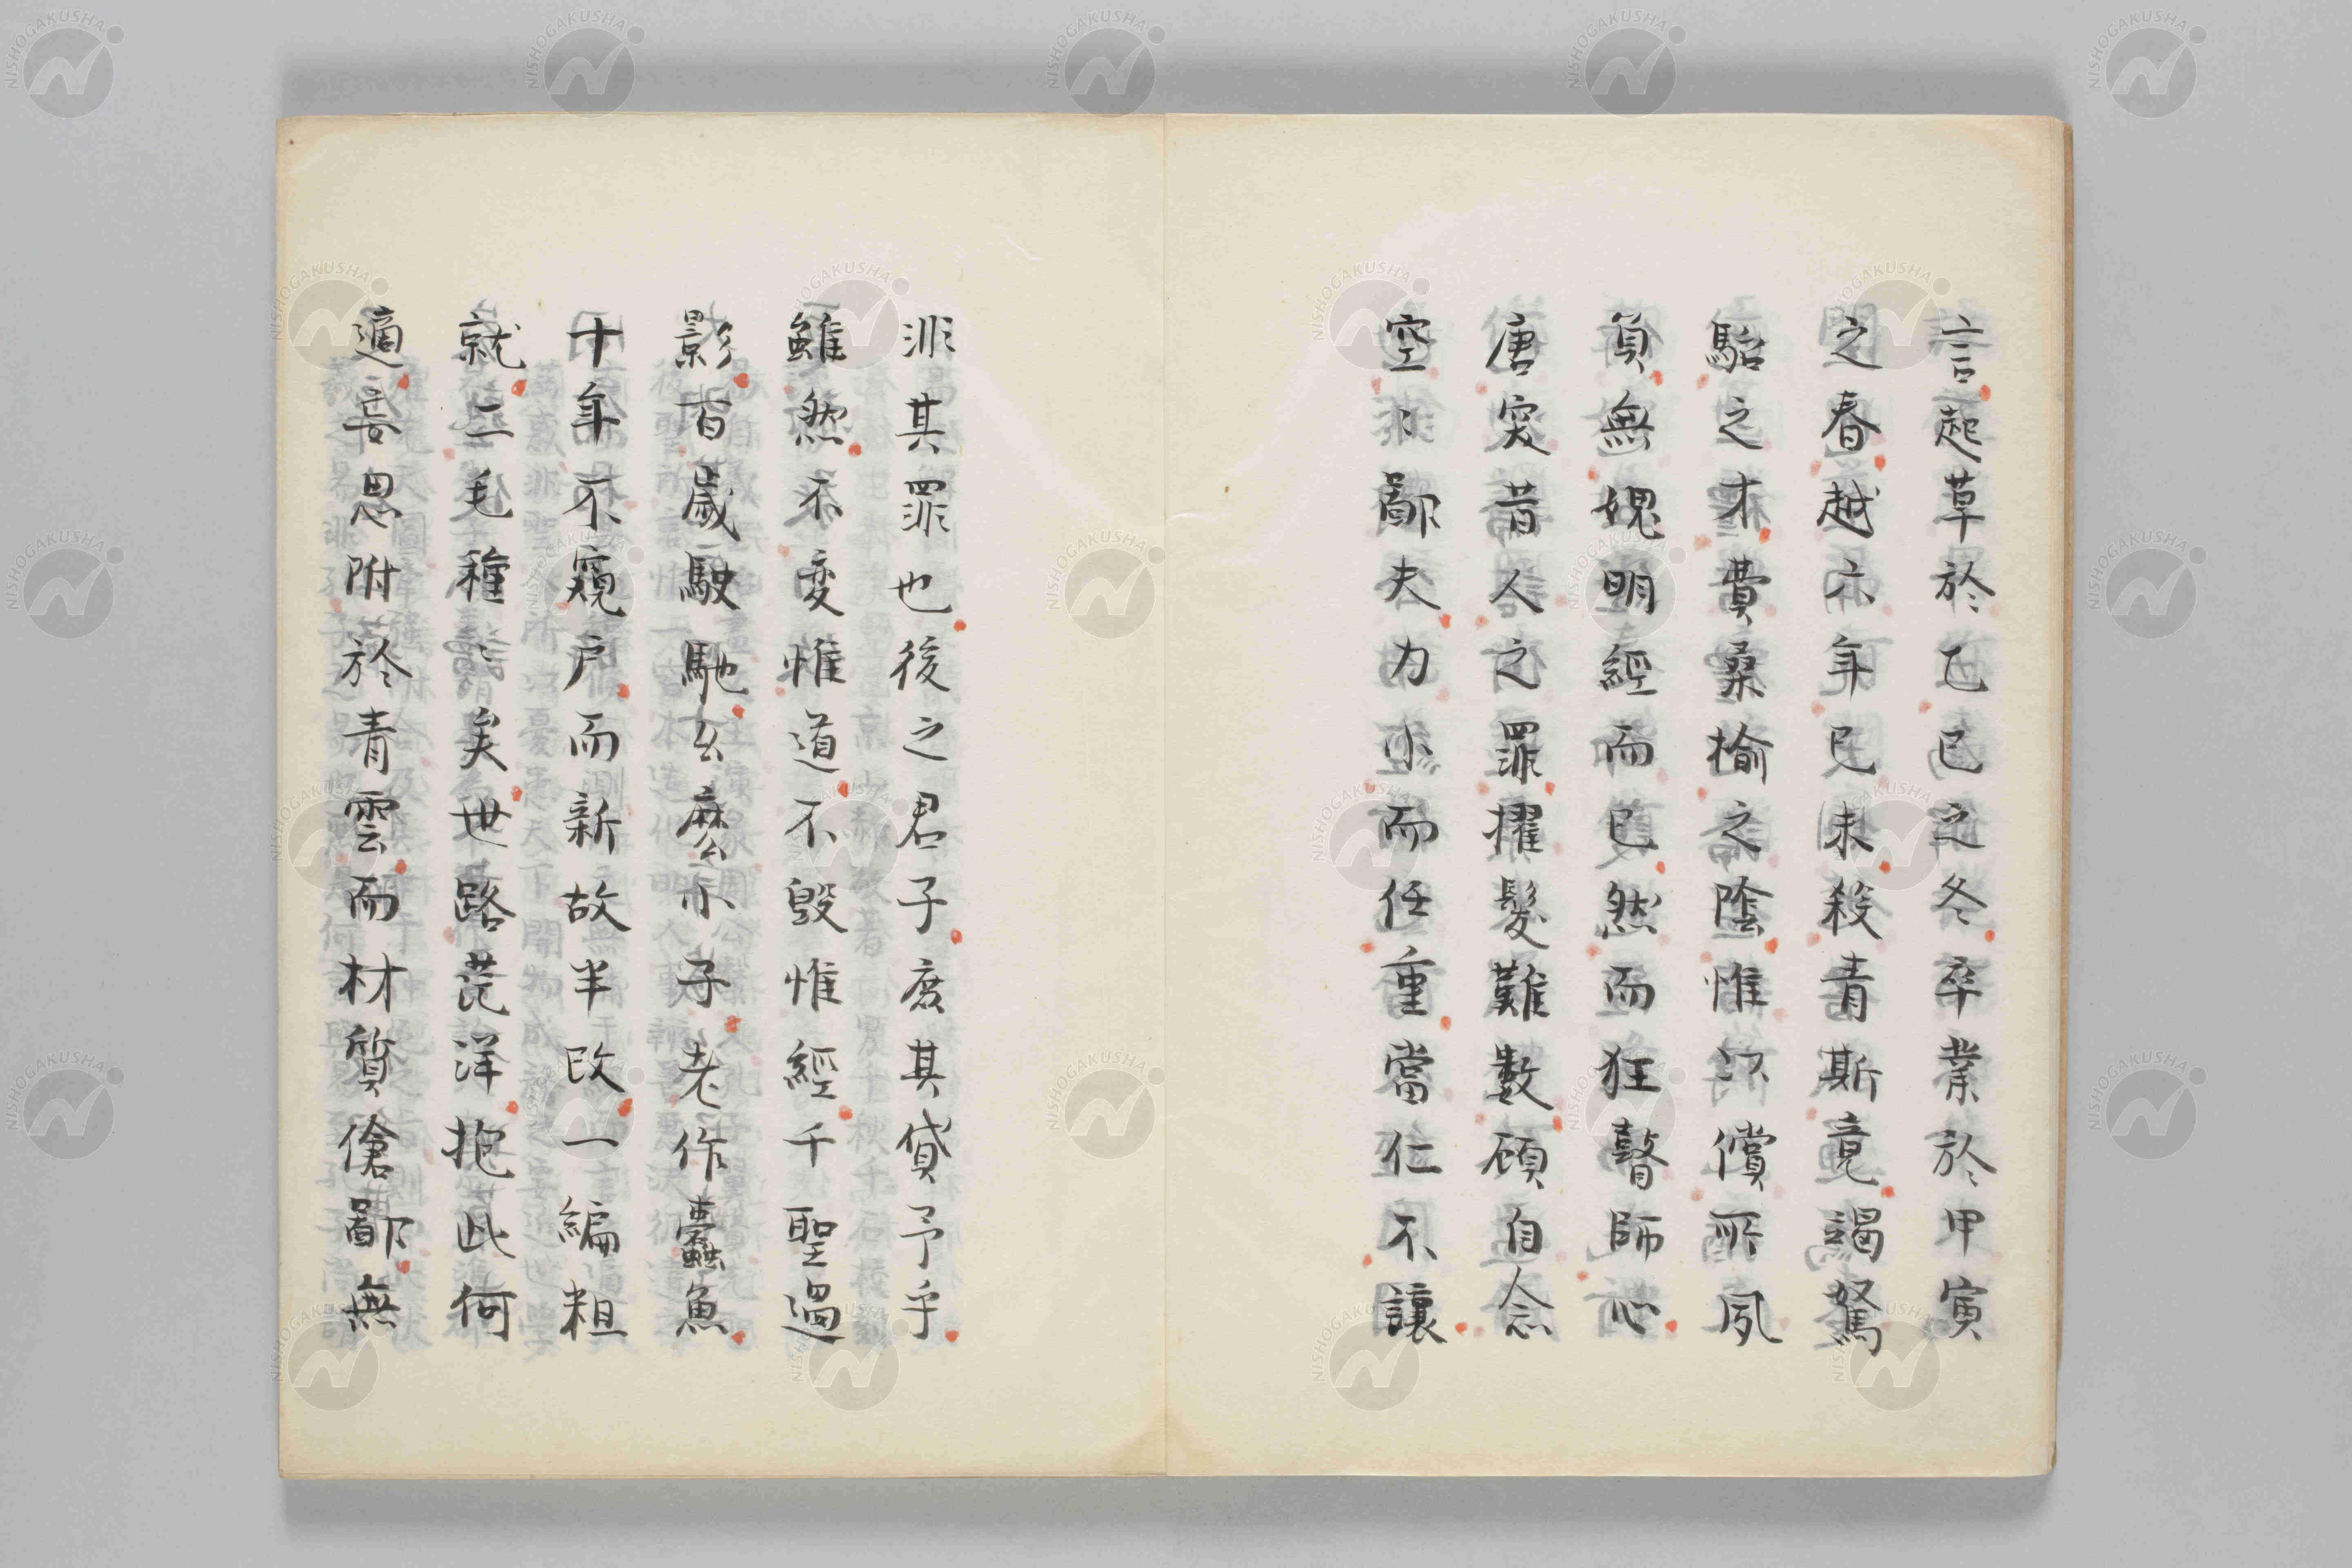 言起草於乙巳之冬卒業於甲寅
之春越六年已未殺青斯竟竭駑
駘之才費桑榆之陰惟以償所夙
負無媿明經而已然而狂瞽師心
唐突昔人之罪擢髮難數顧自念
空〻鄙夫力小而任重當仁不讓
非其罪也後之君子庶其貸予乎
雖然不変惟道不毀惟經千聖過
影百歲駛馳幺麼小子老作蠹魚
十年不窺戶而新故半改一編粗
就二毛種〻矣世路茫洋抱此何
適妄思附於青雲而材質傖鄙無
NISHOGAKUSHA